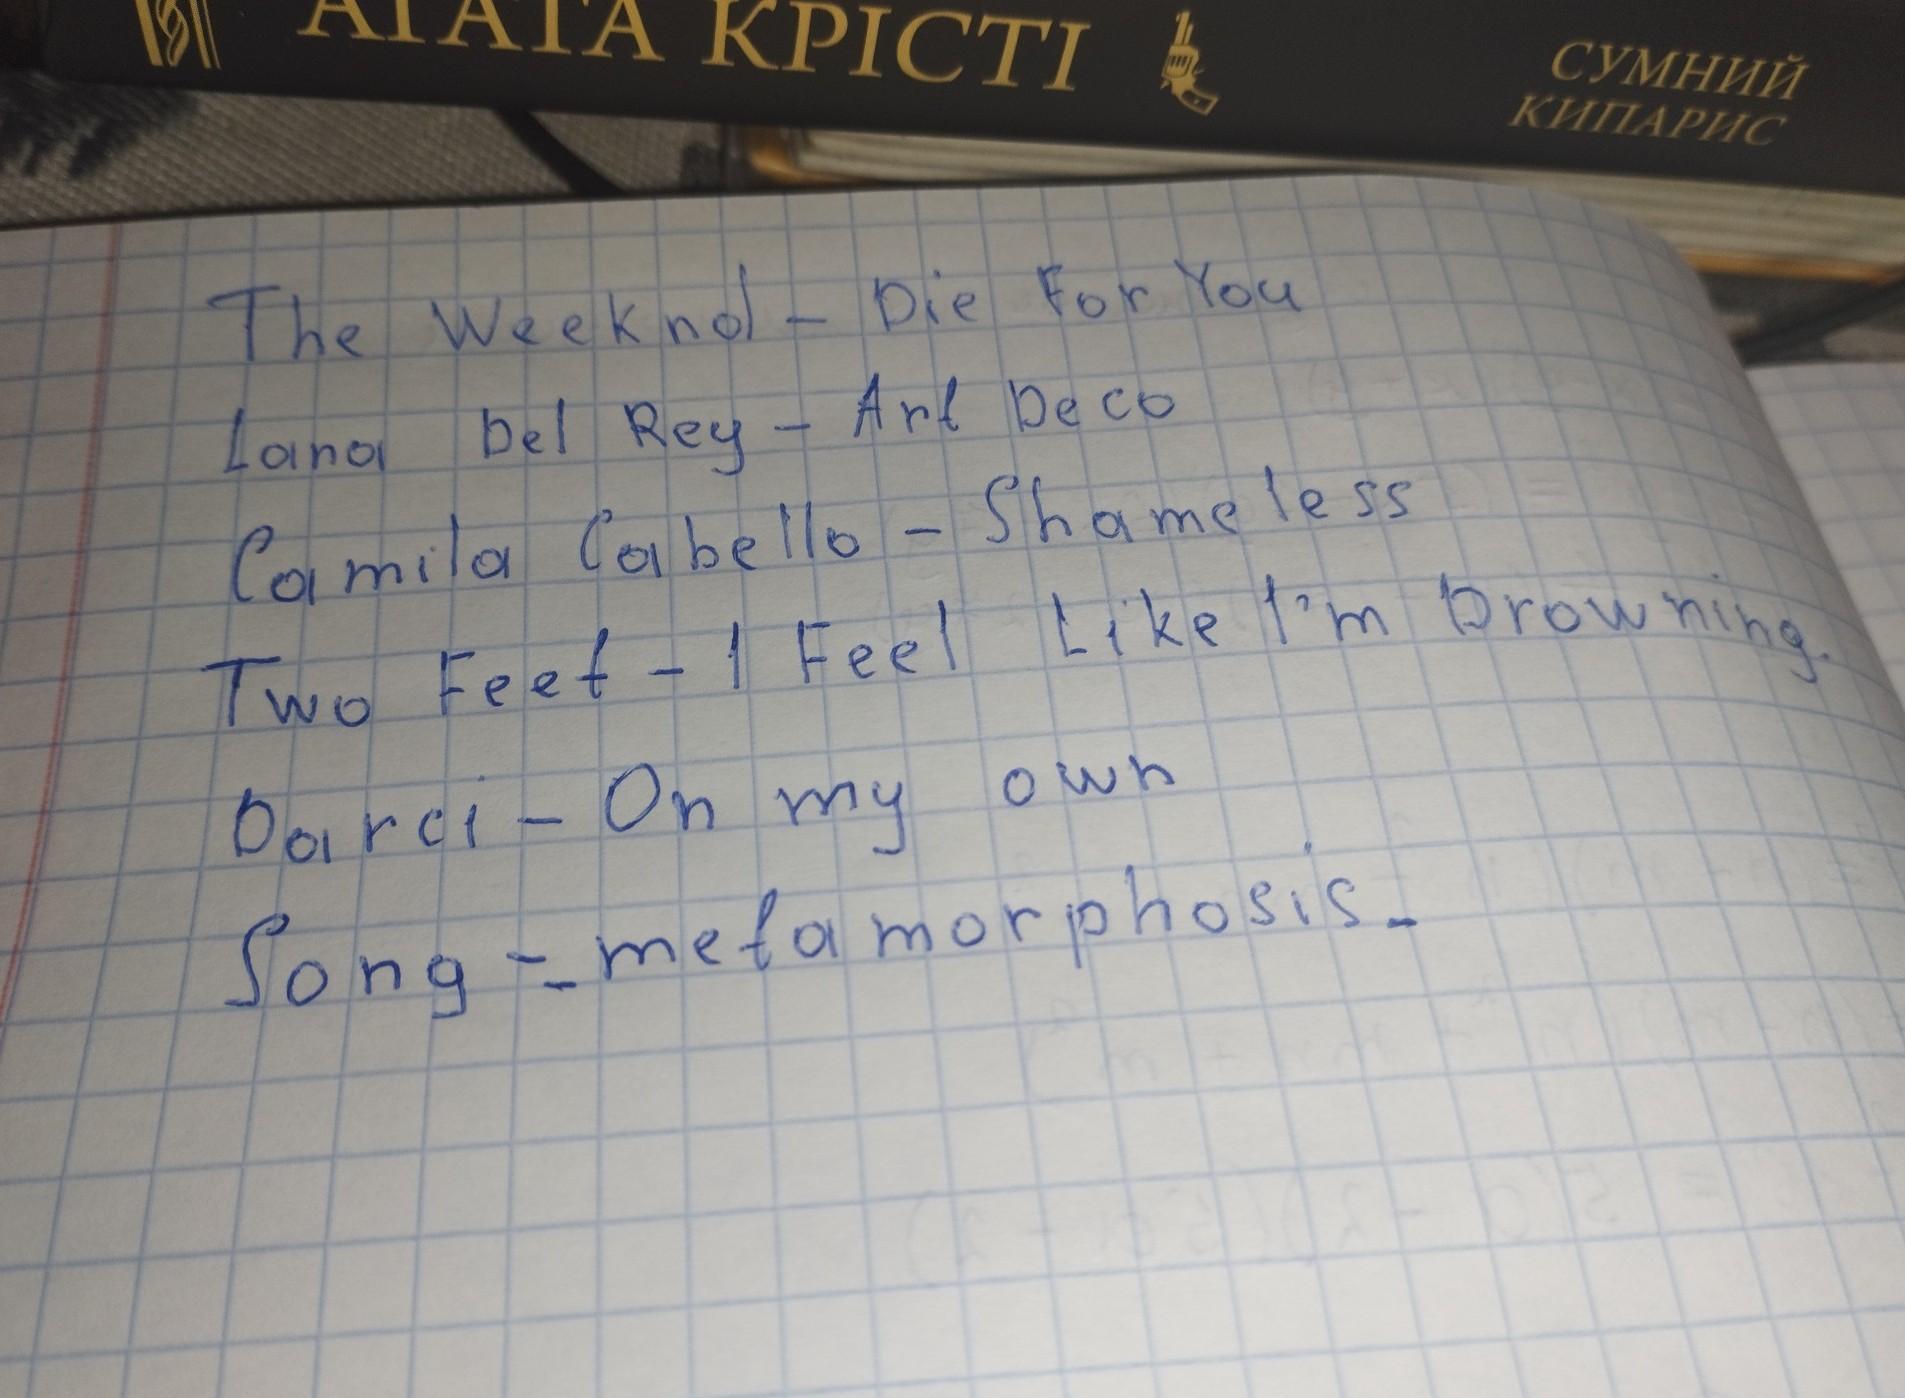 АГАТА КРІСТІ
СУМНИЙ
КИПАРИС
The Weeknd - Die For You
Lana Del Rey - Art Deco
Camila Cabello - Shameless
Two Feet - I Feel Like I'm Drowning.
Darci - On my own
Song - metamorphosis.